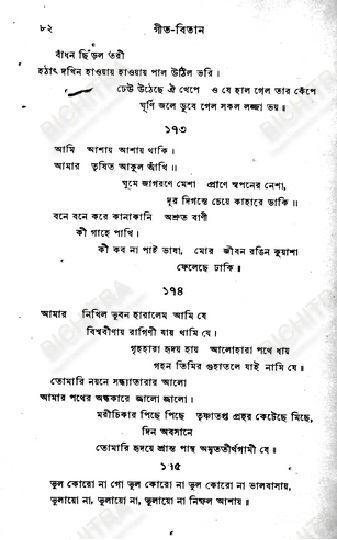 ৮২ গীত-বিতান
বাঁধন ছিঁড়ল তরী
হঠাৎ দখিন হাওয়ায় হাওয়ায় পাল উঠিল ভরি।
ঢেউ উঠেছে ঐ খেপে ও যে হাল গেল তার কেঁপে
ঘূর্ণি জলে ডুবে গেল সকল লজ্জা ভয়॥
১৭৩
আমি আশায় আশায় থাকি।
আমার তৃষিত আকুল আঁখি॥
ঘুমে জাগরণে মেশা প্রাণে স্বপনের নেশা,
দূর দিগন্তে চেয়ে কাহারে ডাকি॥
বনে বনে করে কানাকানি অশ্রুত বাণী
কী গাহে পাখি।
কী কব না পাই ভাষা, মোর জীবন রঙিন কুয়াশা
ফেলেছে ঢাকি।
১৭৪
আমার নিখিল ভুবন হারালেম আমি যে
বিশ্ববীণায় রাগিণী যায় থামি যে।
গৃহহারা হৃদয় হায় আলোহারা পথে ধায়
গহন তিমির গুহাতলে যাই নামি যে।
তোমারি নয়নে সন্ধ্যাতারার আলো
আমার পথের অন্ধকারে জ্বালো জ্বালো।
মরীচিকার পিছে পিছে তৃষ্ণাতপ্ত প্রহর কেটেছে মিছে,
দিন অবসানে
তোমারি হৃদয়ে শ্রান্ত পান্থ অমৃততীর্থগামী যে॥
১৭৫
ভুল কোরো না গো ভুল কোরো না ভুল কোরো না ভালবাসায়,
ভুলায়ো না, ভুলায়ো না, ভুলায়ো না নিষ্ফল আশায়।
BICHITRA